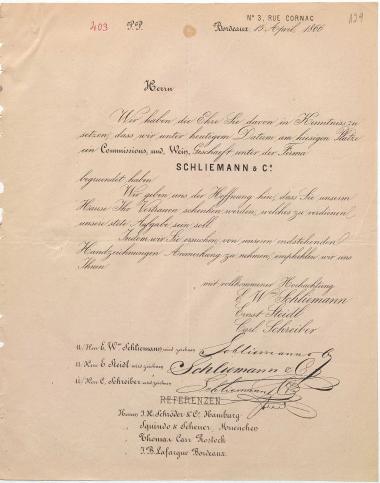 Nº 3, RUE CORNAC
403 P.P. Bordeaux 15 April 1866
Herrn
Wir haben die Ehre Sie davon in Kenntniss zu
setzen, dass wir unter heutigem Datum am hiesigen Platze
ein Commissions, und, Wein, Geschaeft unter der Firma
SCHLIEMANN & Cº
begruendet haben
Wir geben uns der Hoffnung hin, dass Sie unserm
Hause Ihr Vertrauen schenken werden, welches zu verdienen
unsere stete Aufgabe sein soll
Indem wir Sie ersuchen, von unseren endstehenden
Handzeichnungen Anmerkung zu nehmen, empfehlen wir uns
Ihnen
mit vollkommener Hochachtung
E. Wm Schliemann
Ernst Steidl
Carl Schreiber
Herr E. Wm Schliemann wird zeichnen Schliemann & Co
Herr E. Steidl wird zeichnen Schliemann & Co
Herr C. Schreiber wird zeichnen Schliemann & Co
REFERENZEN
Herren J. H. Schröder & Cº Hamburg
Squindo & Scheuer, Muenchen
Thomas Carr Rostock
J. B. Lafargue Bordeaux.